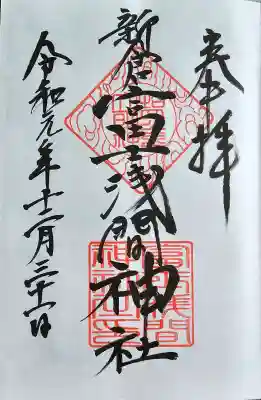 奉拝
新倉富士浅間神社
令和元年十二月三十一日